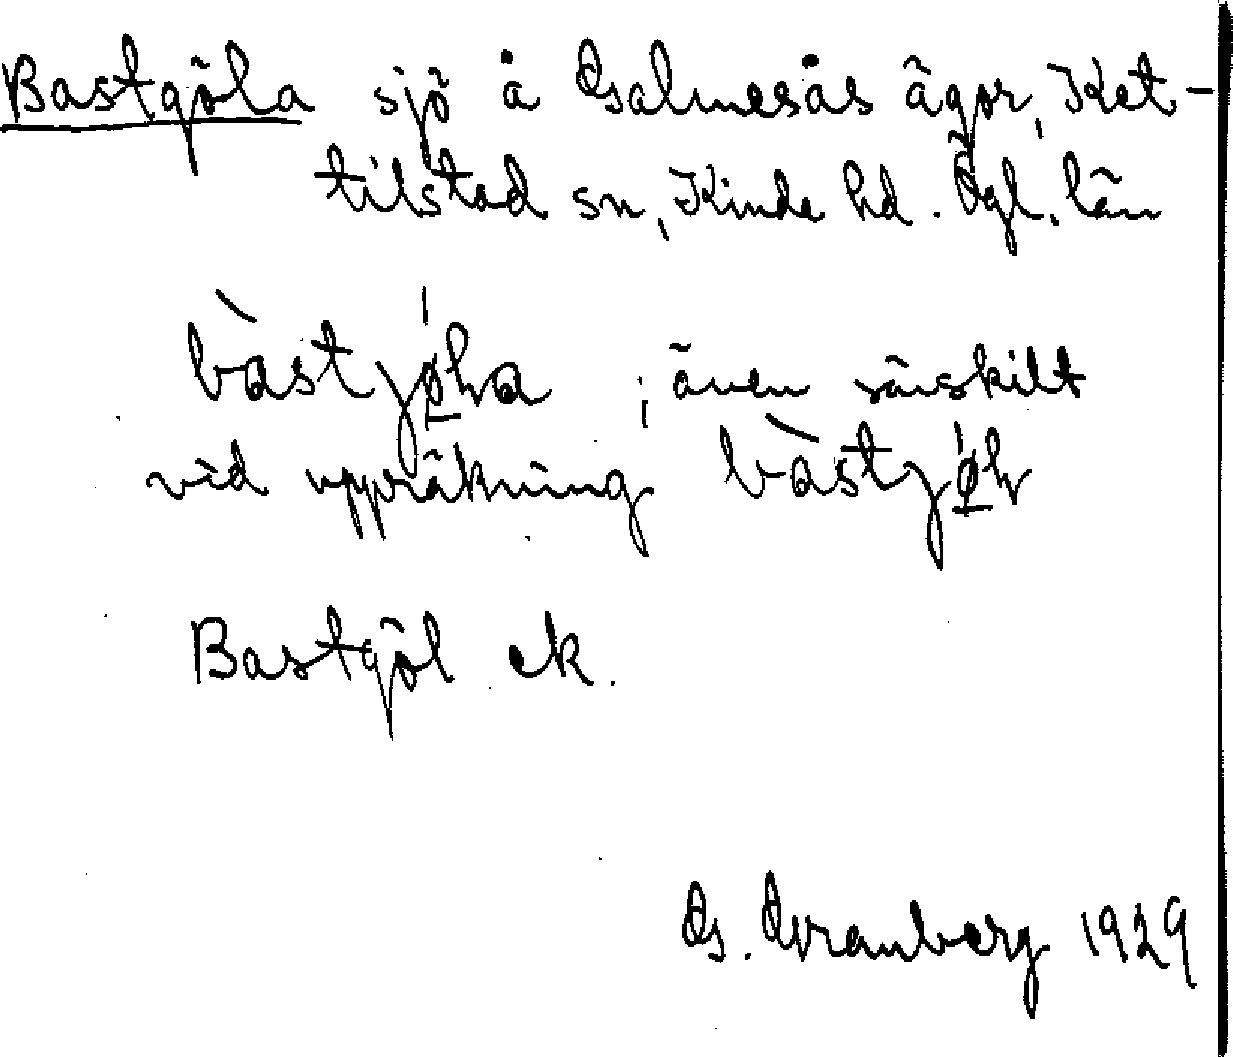 Bastgöla sjö å Galmesås ägor, Ket-
tilstad sn, Kinda hd. Ögl. län
även särskilt
vid uppräkning
Bastgöl ek.
G. Granberg 1929